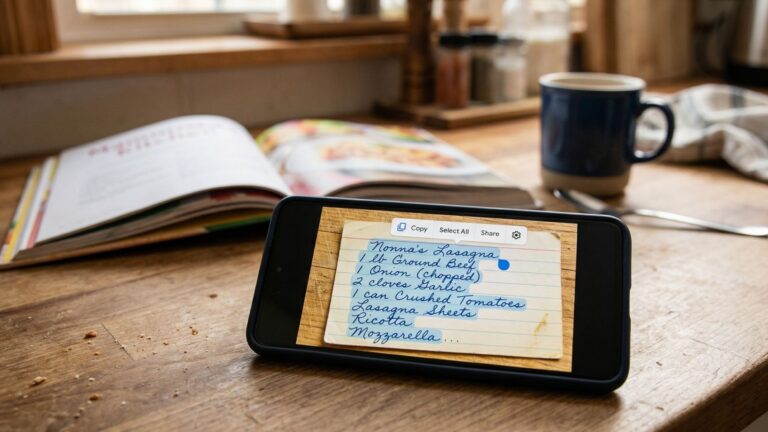 Copy Select All Share
Nonna's Lasagna
1 lb Ground Beef
1 Onion (chopped)
2 cloves Garlic
1 can Crushed Tomatoes
Lasagna Sheets
Ricotta
Mozzarella ...